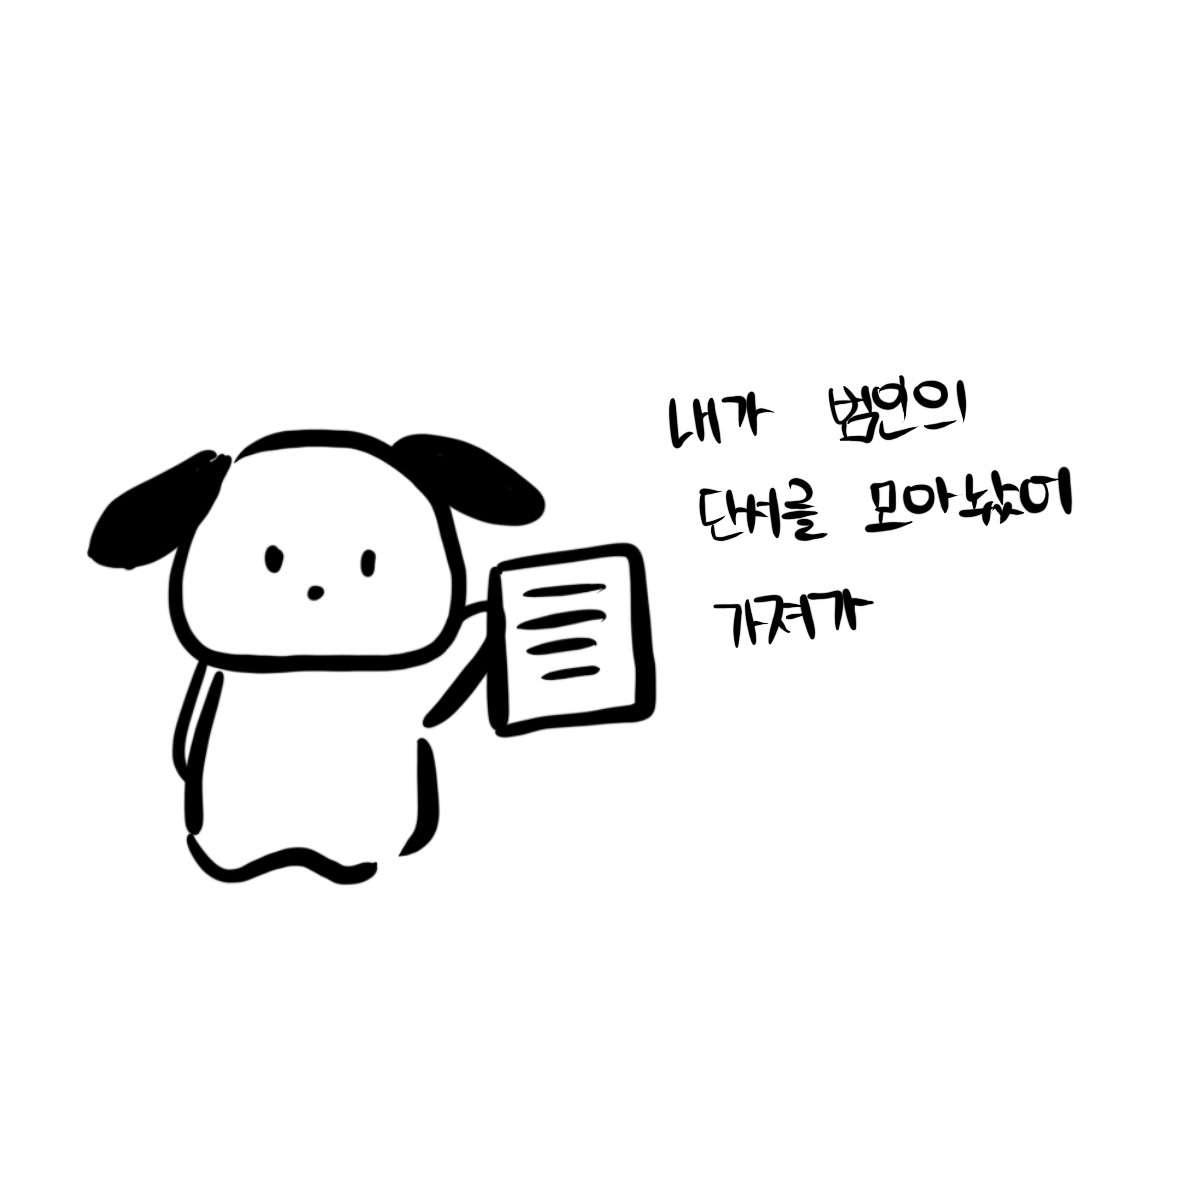 내가 범인의
단서를 모아놨어
가져가